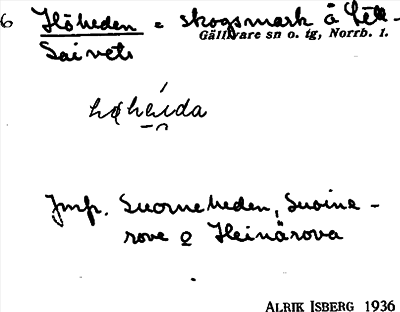 6 Höheden = skogsmark å Lill-
Gällivare sn o. tg, Norrb. l.
Saivets
Jmf. Suorneheden, Suoina-
rova o Heinärova
ALRIK ISBERG 1936